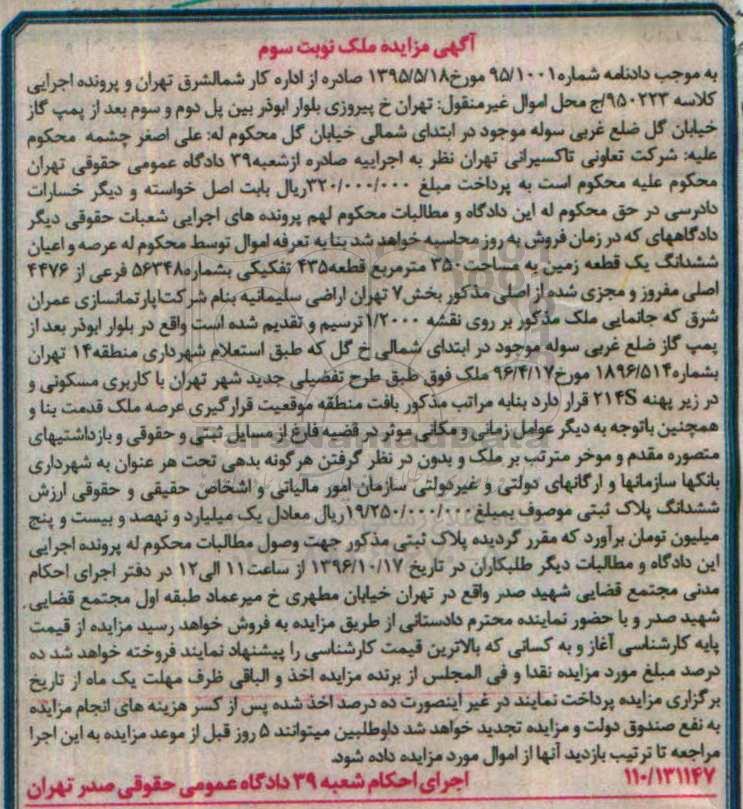 آگهی مزایده ملک نوبت سوم
به موجب دادنامه شماره۹۵/۱۰۰۱ مورخ۱۳۹۵/۵/۱۸ صادره از اداره کار شمالشرق تهران و پرونده اجرایی
کلاسه ۹۵۰۲۲۳/ج محل اموال غیرمنقول: تهران خ پیروزی بلوار ابوذر بین پل دوم و سوم بعد از پمپ گاز
خیابان گل ضلع غربی سوله موجود در ابتدای شمالی خیابان گل محکوم له: علی اصغر چشمه محکوم
علیه: شرکت تعاونی تاکسیرانی تهران نظر به اجراییه صادره ازشعبه۳۹ دادگاه عمومی حقوقی تهران
محکوم علیه محکوم است به پرداخت مبلغ ۳۲۰/۰۰۰/۰۰۰ریال بابت اصل خواسته و دیگر خسارات
دادرسی در حق محکوم له این دادگاه و مطالبات محکوم لهم پرونده های اجرایی شعبات حقوقی دیگر
دادگاههای که در زمان فروش به روز محاسبه خواهد شد بنا به تعرفه اموال توسط محکوم له عرصه و اعیان
ششدانگ یک قطعه زمین به مساحت ۳۵۰ مترمربع قطعه۴۳۵ تفکیکی بشماره۵۶۳۴۸ فرعی از ۴۴۷۶
اصلی مفروز و مجزی شده از اصلی مذکور بخش۷ تهران اراضی سلیمانیه بنام شرکت‌اپارتمانسازی عمران
شرق که جانمایی ملک مذکور بر روی نقشه ۱/۲۰۰۰ترسیم و تقدیم شده است واقع در بلوار ابوذر بعد از
پمپ گاز ضلع غربی سوله موجود در ابتدای شمالی خ گل که طبق استعلام شهرداری منطقه۱۴ تهران
بشماره۱۸۹۶/۵۱۴ مورخ۹۶/۴/۱۷ ملک فوق طبق طرح تفضیلی جدید شهر تهران با کاربری مسکونی و
در زیر پهنه ۲۱۴S قرار دارد بنابه مراتب مذکور بافت منطقه موقعیت قرارگیری عرصه ملک قدمت بنا و
همچنین باتوجه به دیگر عوامل زمانی و مکانی موثر در قضیه فارغ از مسایل ثبتی و حقوقی و بازداشتیهای
متصوره مقدم و موخر مترتب بر ملک و بدون در نظر گرفتن هرگونه بدهی تحت هر عنوان به شهرداری
بانکها سازمانها و ارگانهای دولتی و غیردولتی سازمان امور مالیاتی و اشخاص حقیقی و حقوقی ارزش
ششدانگ پلاک ثبتی موصوف بمبلغ۱۹/۲۵۰/۰۰۰/۰۰۰ریال معادل یک میلیارد و نهصد و بیست و پنج
میلیون تومان برآورد که مقرر گردیده پلاک ثبتی مذکور جهت وصول مطالبات محکوم له پرونده اجرایی
این دادگاه و مطالبات دیگر طلبکاران در تاریخ ۱۳۹۶/۱۰/۱۷ از ساعت۱۱ الی۱۲ در دفتر اجرای احکام
مدنی مجتمع قضایی شهید صدر واقع در تهران خیابان مطهری خ میرعماد طبقه اول مجتمع قضایی
شهید صدر و با حضور نماینده محترم دادستانی از طریق مزایده به فروش خواهد رسید مزایده از قیمت
پایه کارشناسی آغاز و به کسانی که بالاترین قیمت کارشناسی را پیشنهاد نمایند فروخته خواهد شد ده
درصد مبلغ مورد مزایده نقدا و فی المجلس از برنده مزایده اخذ و الباقی ظرف مهلت یک ماه از تاریخ
برگزاری مزایده پرداخت نمایند در غیر اینصورت ده درصد اخذ شده پس از کسر هزینه های انجام مزایده
به نفع صندوق دولت و مزایده تجدید خواهد شد داوطلبین میتوانند ۵ روز قبل از موعد مزایده به این اجرا
مراجعه تا ترتیب بازدید آنها از اموال مورد مزایده داده شود.
۱۱۰/۱۳۱۱۴۷ اجرای احکام شعبه ۳۹ دادگاه عمومی حقوقی صدر تهران